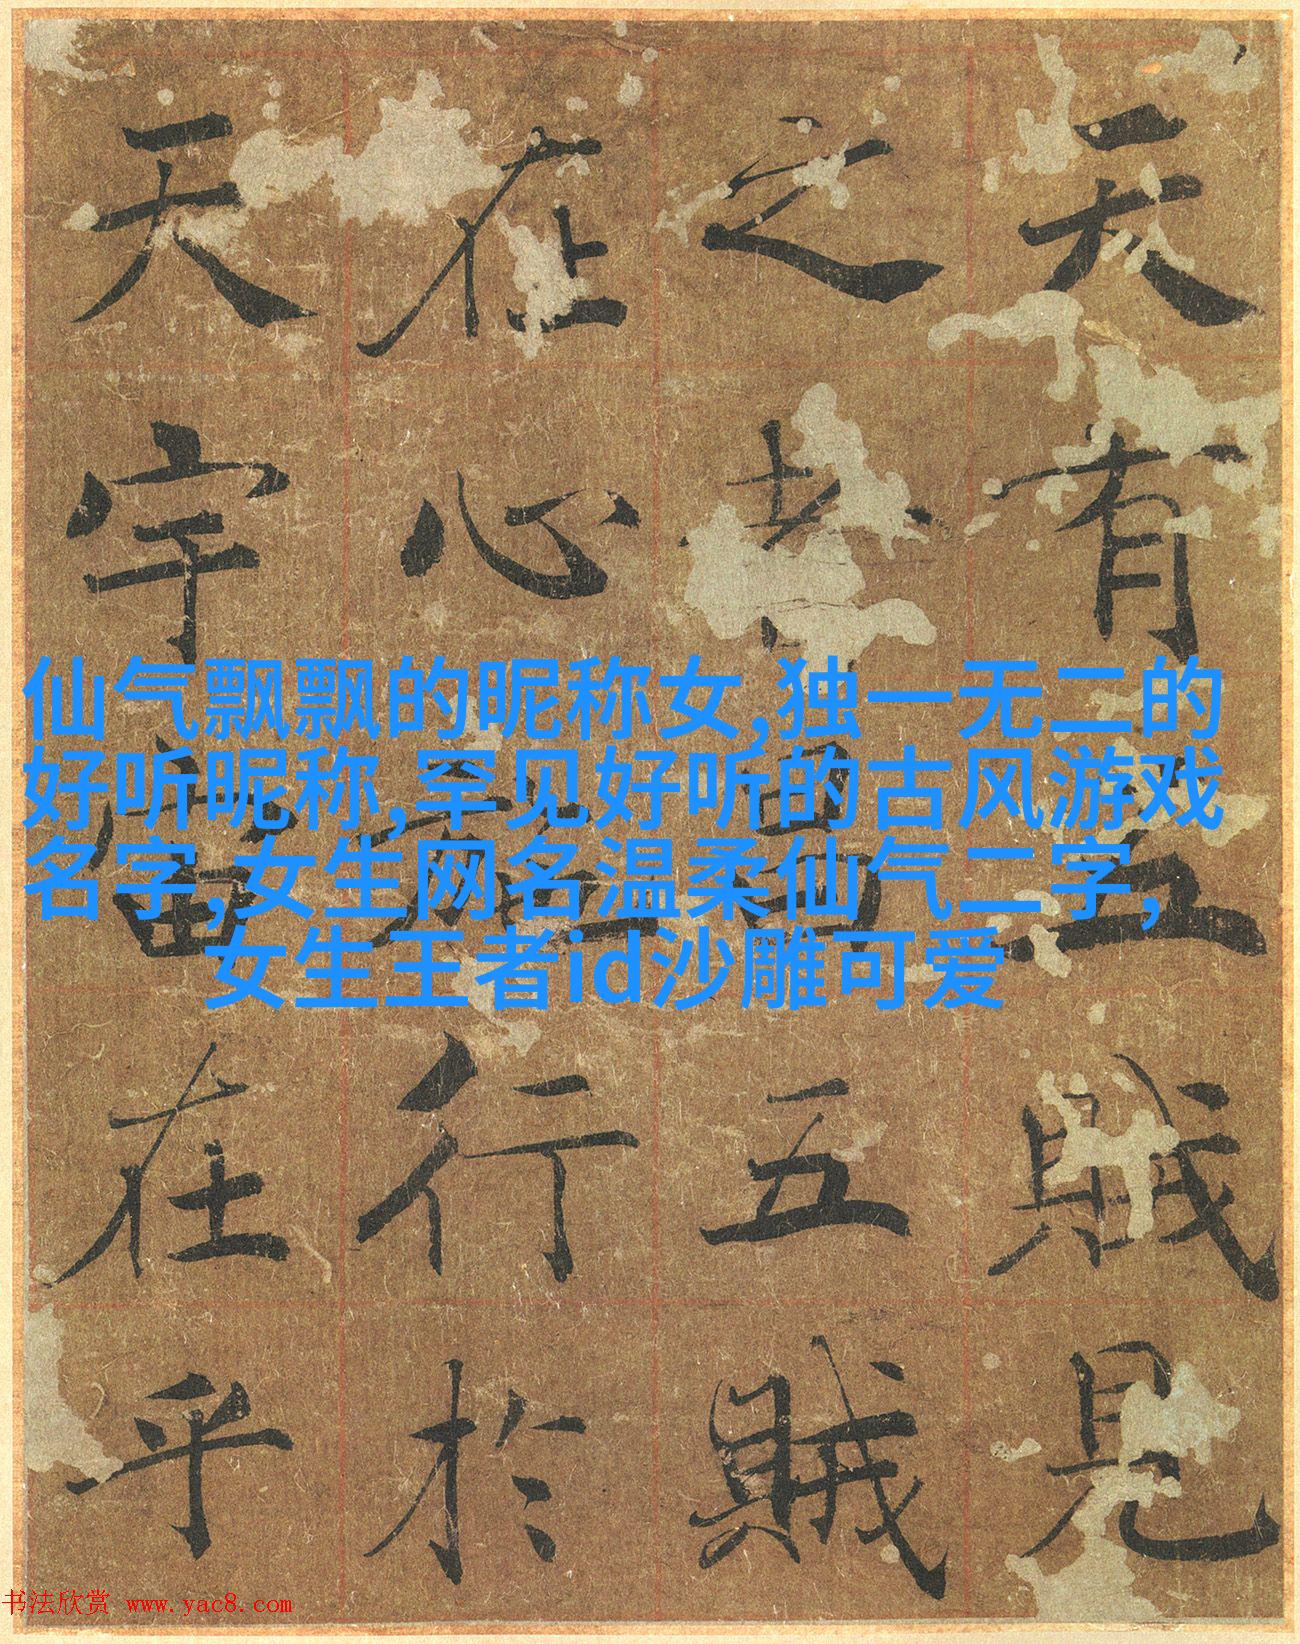 天有五賊見
之者昌五賊
在心施行於
天宇宙在乎
仙气飘飘的昵称女,独一无二的
好听昵称,罕见好听的古风游戏
名字,女生网名温柔仙气二字,
女生王者id沙雕可爱
书法欣赏 www.yac8.com